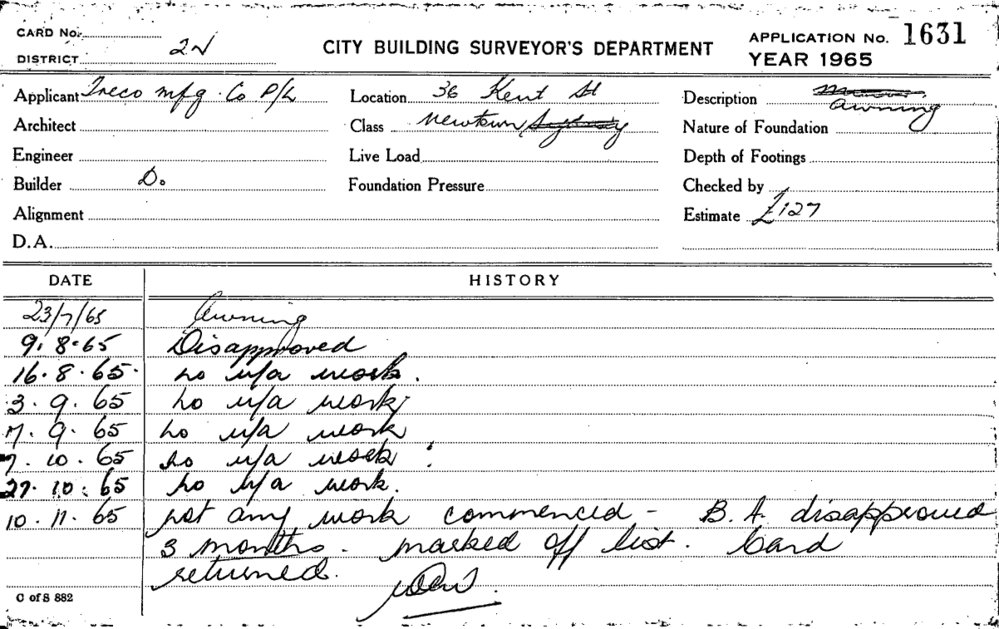 CARD No.
DISTRICT 2N
CITY BUILDING SURVEYOR'S DEPARTMENT
APPLICATION No. 1631
YEAR 1965
Applicant Treco mfg. Co P/L
Location 36 Kent St
Description awning
Architect
Class Newtown Sydney
Nature of Foundation
Engineer
Live Load
Depth of Footings
Builder Do
Foundation Pressure
Checked by
Alignment
Estimate £127
D.A.
DATE HISTORY
23/7/65 Awning
9.8.65 Disapproved
16.8.65. no u/a work.
3.9.65 no u/a work
7.9.65 no u/a work
7.10.65 no u/a work.
27.10.65 no u/a work.
10.11.65 not any work commenced - B.A. disapproved
3 months. marked off list. Card
returned.
C of S 882